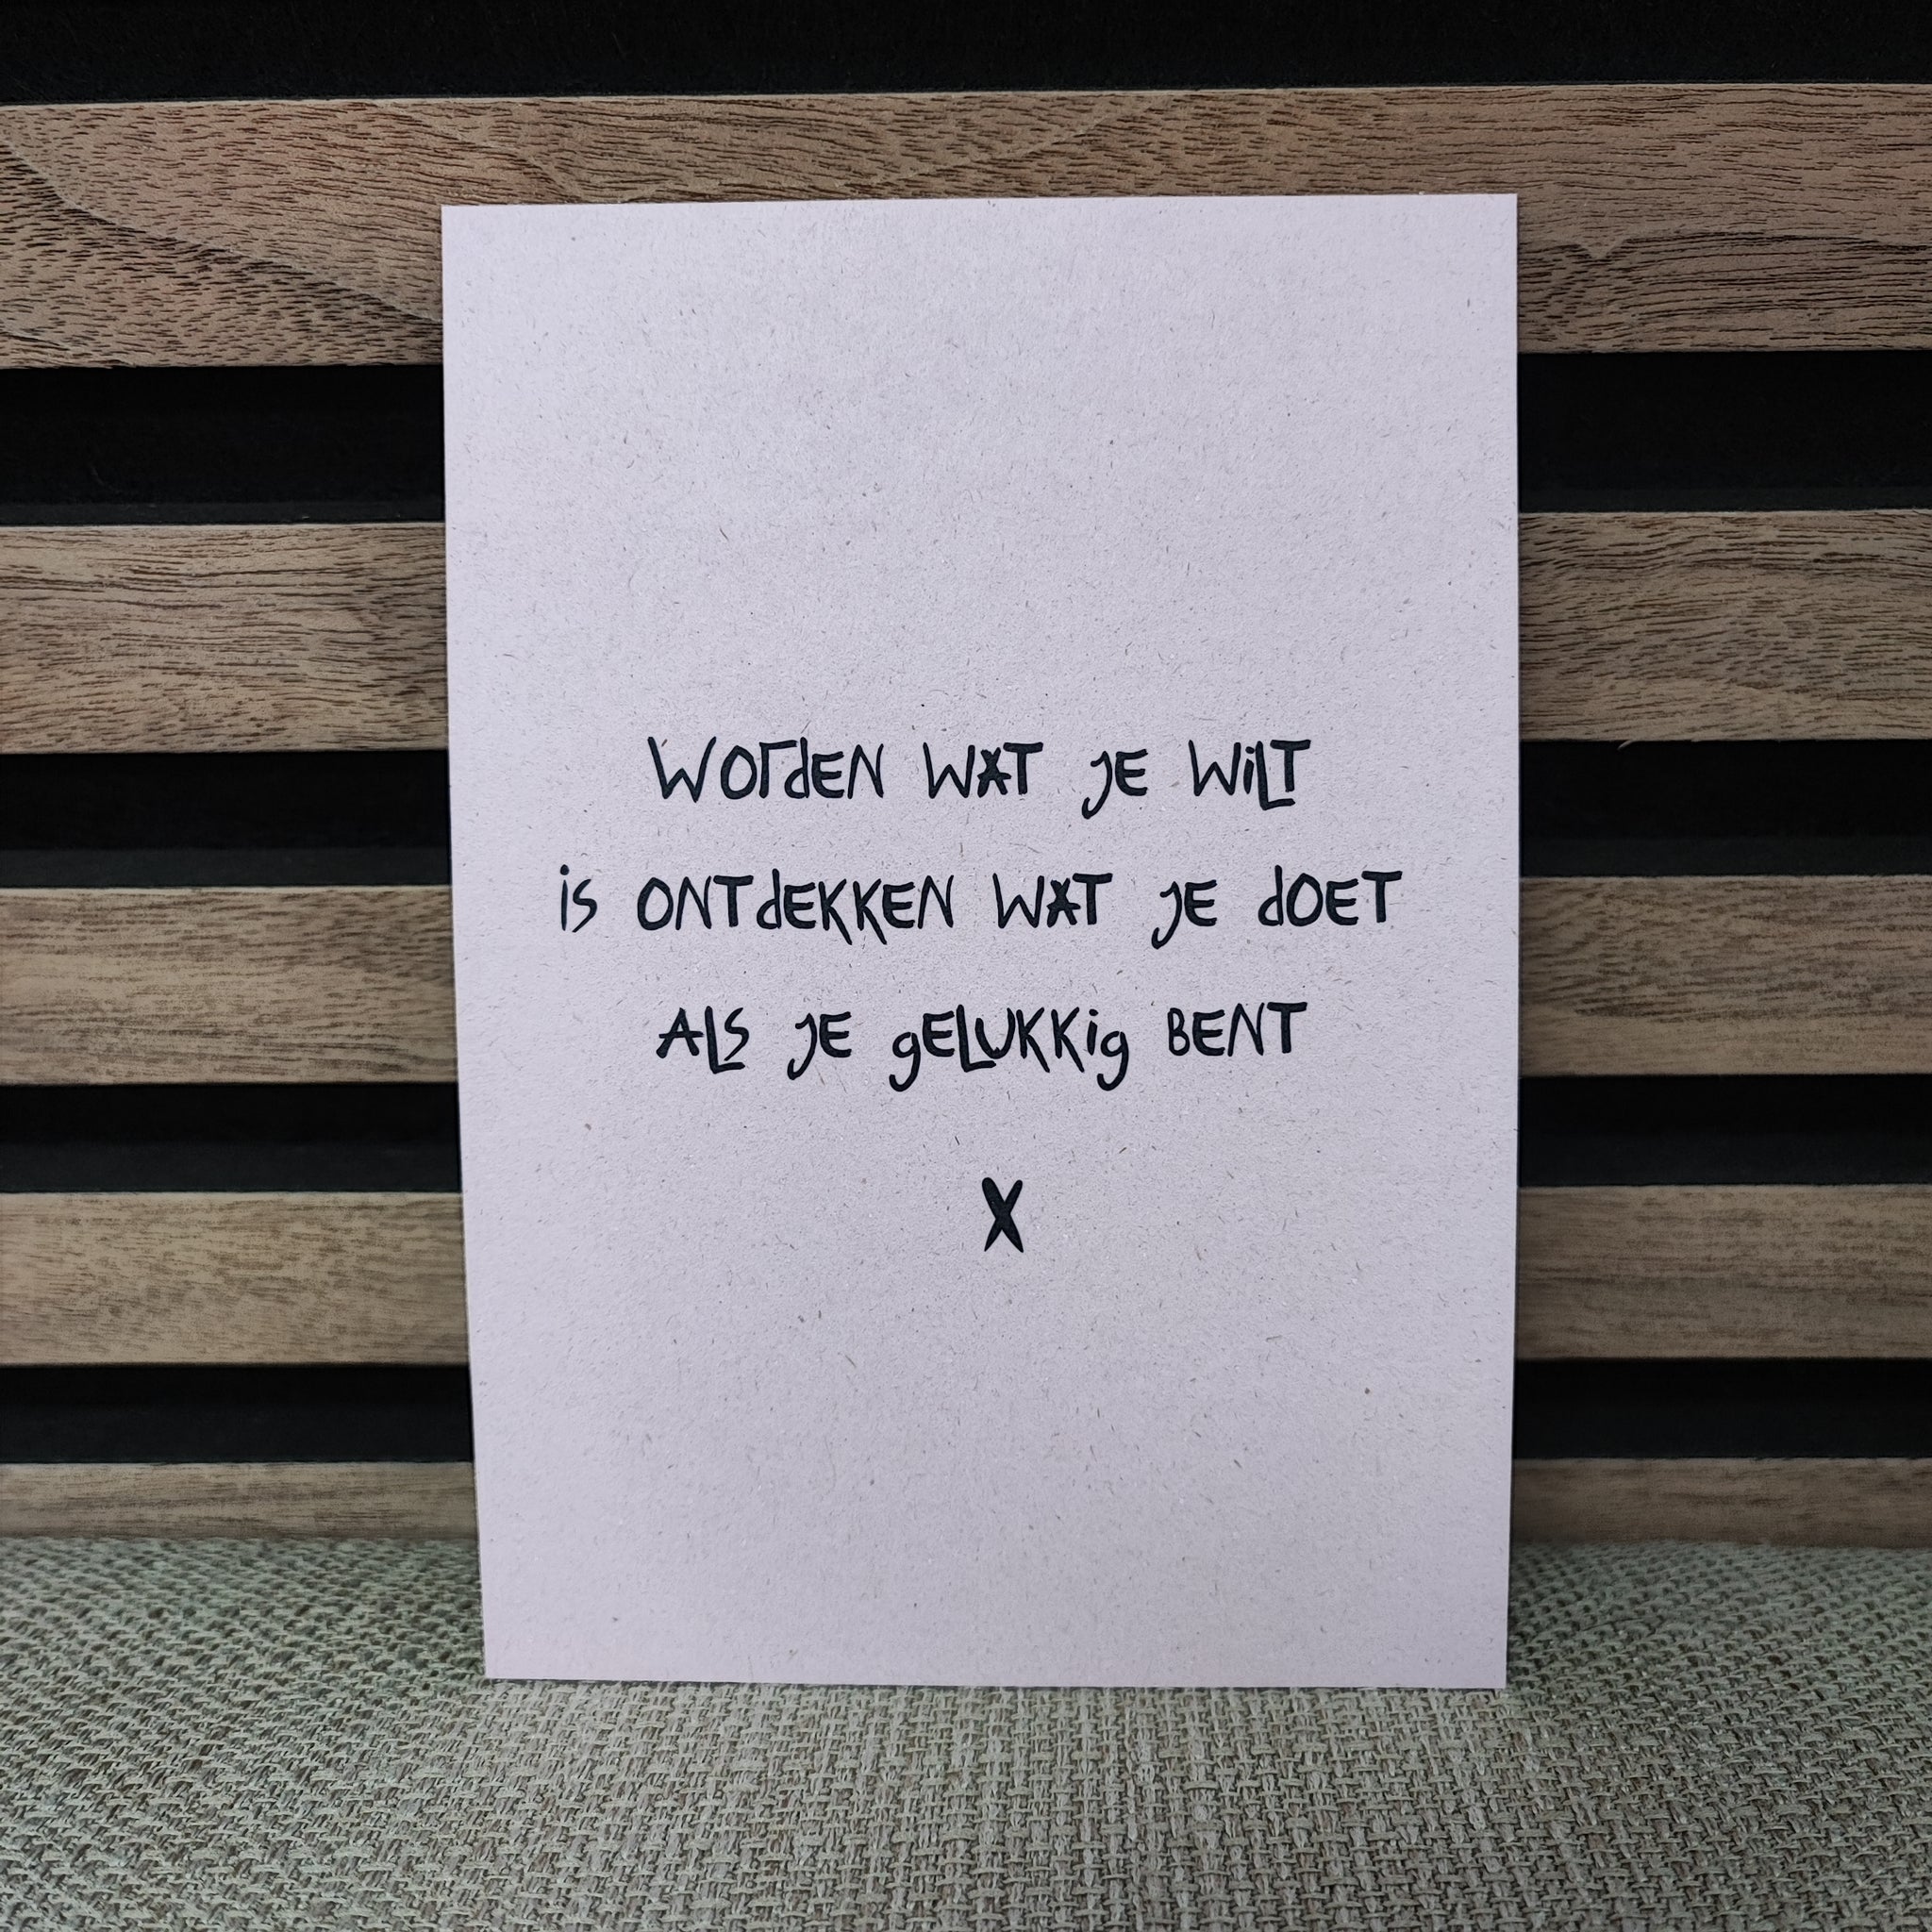 WOrdEN WAT JE WiLT
is ONTdEKKEN WAT JE dOET
ALS JE gELUKKig BENT
X